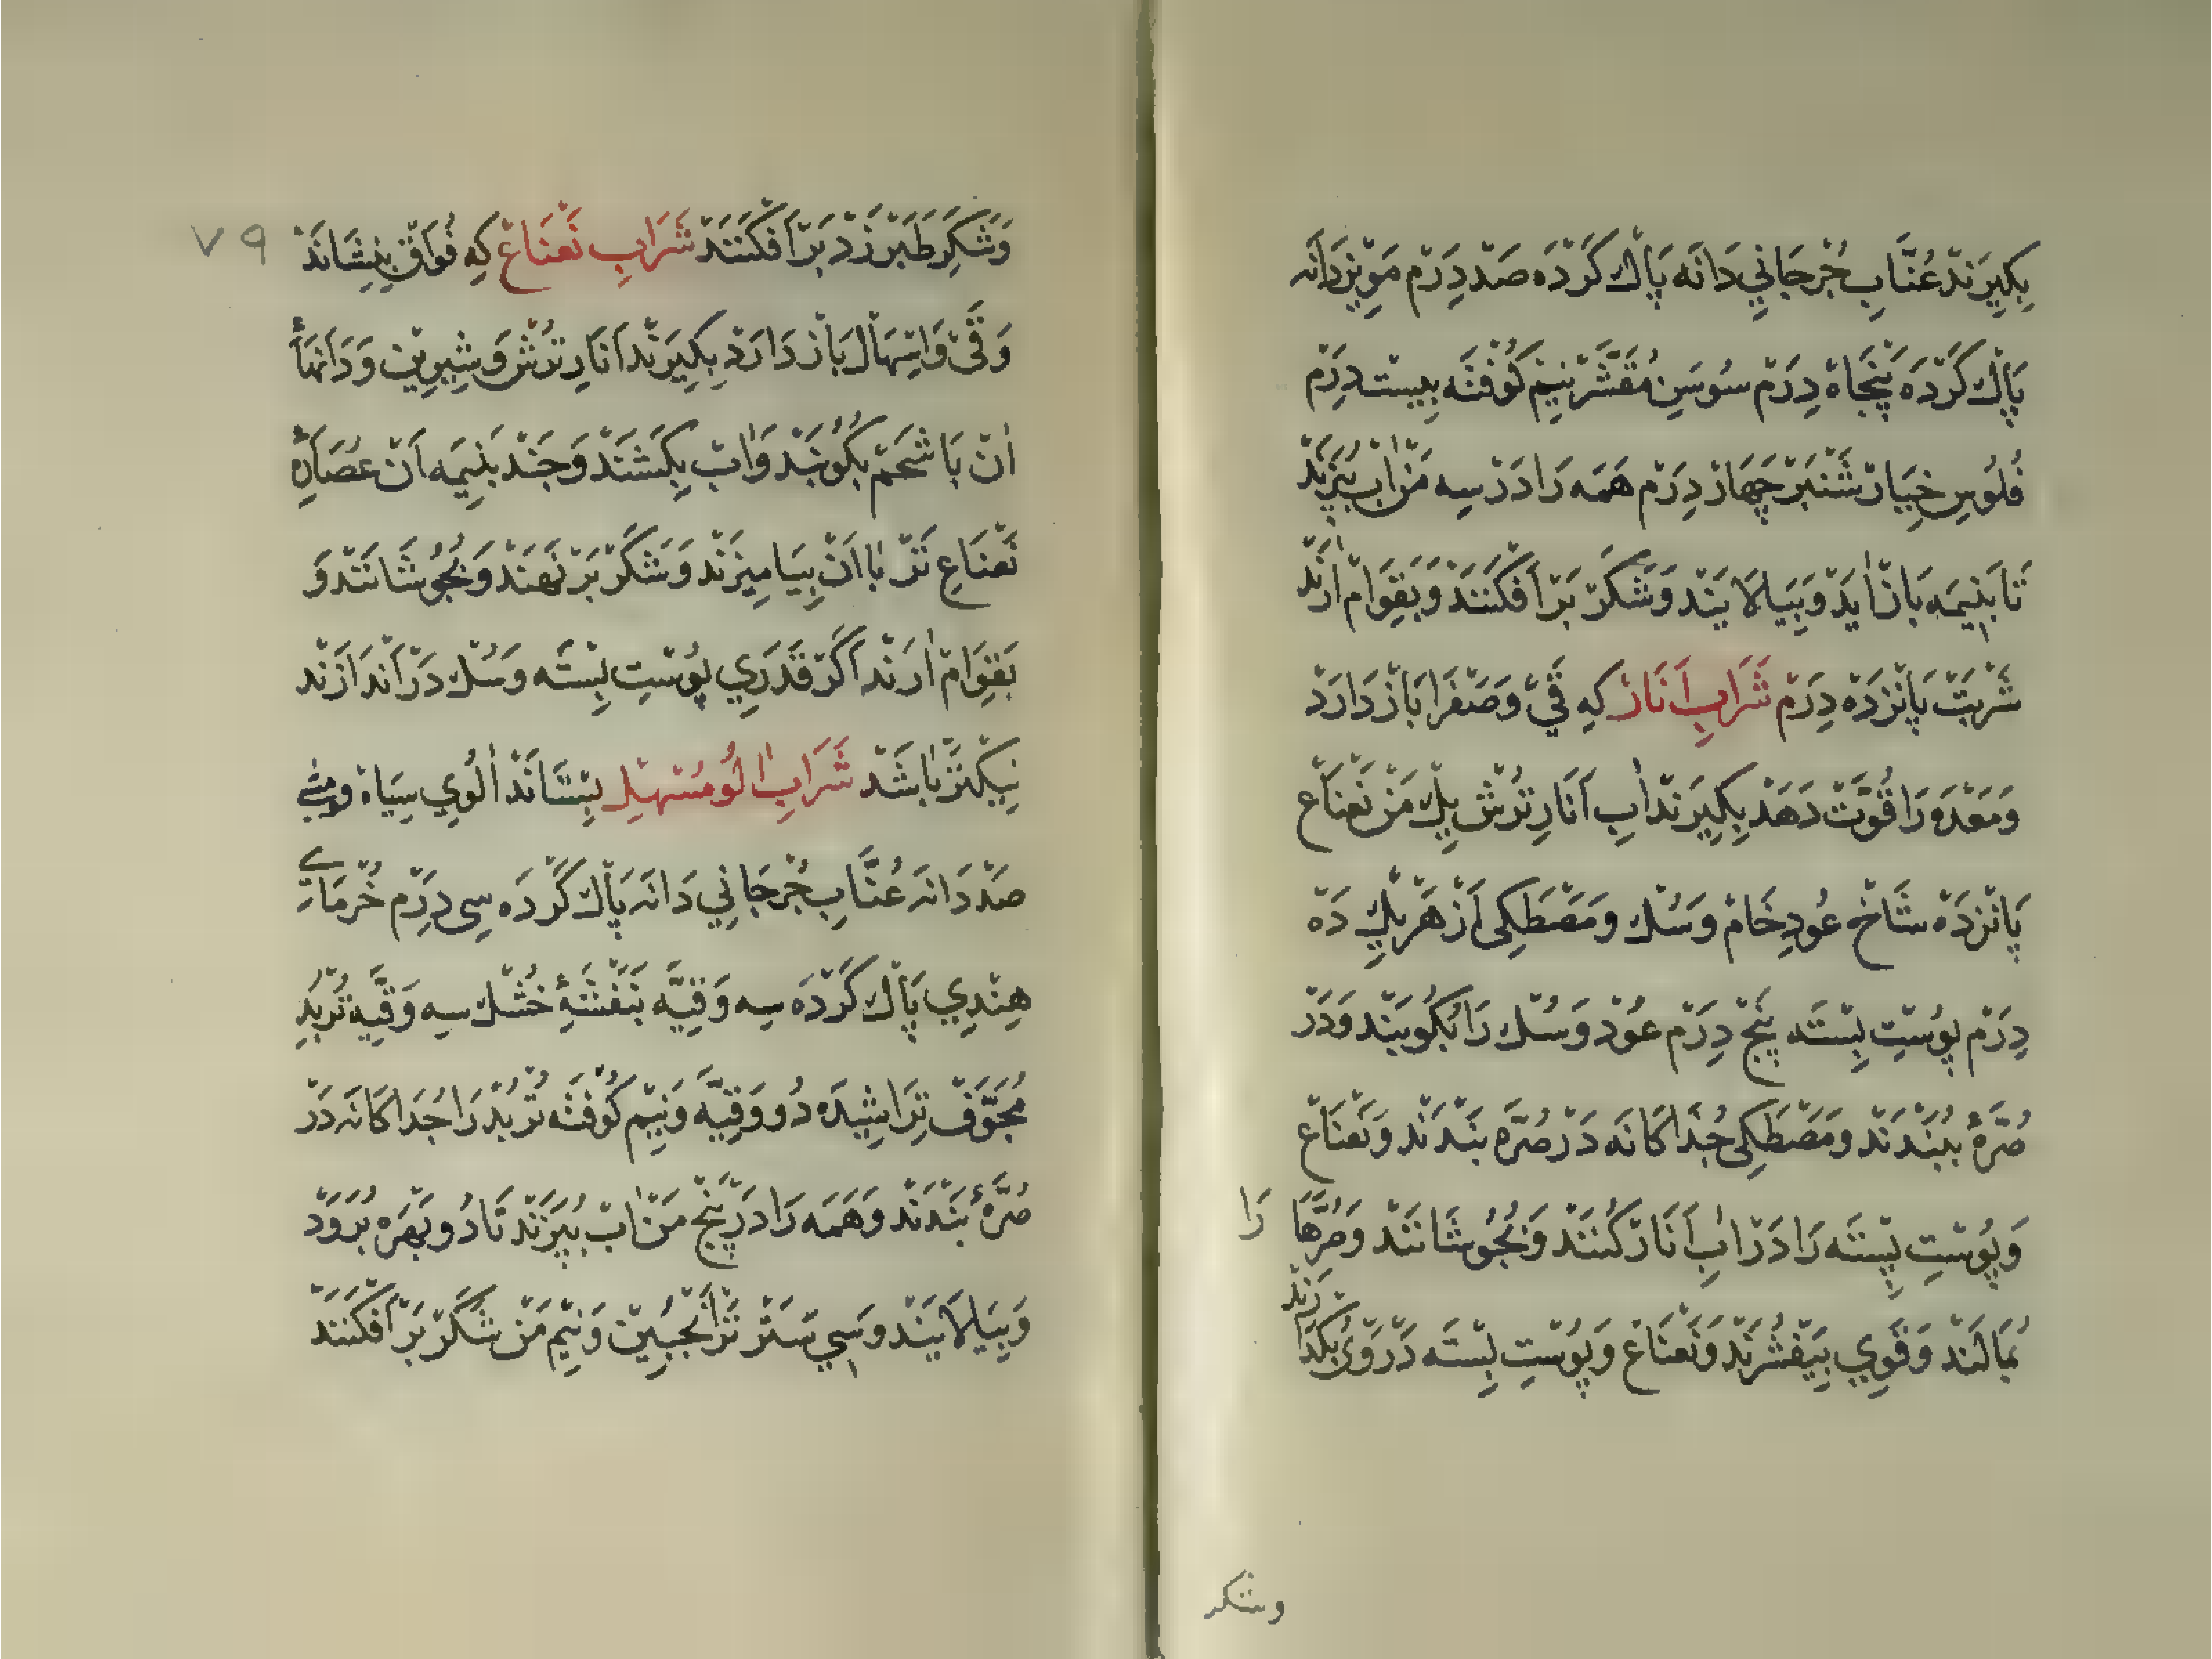 بِكِيرَنْد عُنَّابِ جُرْجَانِي دَانَه پَاكْ كَرْدَه صَدْ دِرَمْ مَوِيزِ دَانَه
پَاكْ كَرْدَه پَنْجَاهْ دِرَمْ سُوسَنِ مُقَشَّرْ نِيمْ كُوفْتَه بِيسْت دِرَمْ
فُلُوسِ خِيَارْ شَنْبَرْ چَهَارْ دِرَمْ هَمَه رَا دَرْ سِه مَنْ اٰبْ بُپَزَنْد
تَا بَنِيمَه بَازْ اٰيَدْ وَبِيَالَايَنْد وَشَكَرْ بَرْ اَفْكَنَنْد وَبَقِوَامْ اٰرَنْد
شَرْبَتْ پَانْزدَهْ دِرَمْ شَرَابِ اَنَارْ كِه قَيْ وَصَفْرَا بَازْ دَارَدْ
وَمَعْدَه رَا قُوَّتْ دَهَدْ بِكِيرَنْد اٰبِ اَنَارِ تُرْشْ يِكْ مَنْ نَعْنَاعْ
پَانْزدَهْ شَاخْ عُودِ خَامْ وَسُكْ وَمَصْطَكِى اَزْ هَرْ يِكِي دَهْ
دِرَمْ پُوسْتِ پِسْتَه پَنْجْ دِرَمْ عُودْ وَسُكْ رَا بُكُوبَنْد وَدَرْ
صُرَّهٔ بَبَنْدَنْد وَمَصْطَكِى جُدَا كَانَه دَرْ صُرَّه بَنْدَنْد وَنَعْنَاعْ
وَپُوسْتِ پِسْتَه رَا دَرْ اٰبِ اَنَارْ كُنَنْد وَبُجُوشَانَنْد وَصُرَّهَا رَا
بُمَالَنْد وَقَوِي بِيَفْشُرَنْد وَنَعْنَاعْ وَپُوسْتِ پِسْتَه دَرْ وَيْ بُكْدَازَنْد
وشكر
وَشَكَرِ طَبَرْزَدْ بَرْ اَفْكَنَنْد شَرَابِ نَعْنَاعْ كِه فُوَاقْ بِنِشَانَدْ
٧٩
وَقَيْ وَاسْهَالْ بَازْ دَارَدْ بِكِيرَنْد اَنَارِ تُرْشْ وَشِيرِينْ وَدَانهَاءِ
اٰنْ بَا شَحَمْ بِكُوبَنْد وَاٰبْ بِكَشَنْد وَچَنْد بَنِيمَه اٰنْ عُصَارِهٔ
نَعْنَاعِ تَرْ بَا اٰنْ بِيَامِيزَنْد وَشَكَرْ بَرْ نَهَنْد وَبُجُوشَانَنْد وَ
بَقِوَامْ اٰرَنْد اَكَرْ قَدَرِي پُوسْتِ پِسْتَه وَسُكْ دَرْ اَنْدَازَنْد
نِيكْتَرْ بَاشَدْ شَرَابِ اٰلُو مُسْهِلْ بِسْتَانَنْد اٰلُوي سِيَاهْ
صَدْ دَانَه عُنَّابِ جُرْجَانِي دَانَه پَاكْ كَرْدَه سِى دِرَمْ خُرْمَاءِ
هِنْدِي پَاكْ كَرْدَه سِه وَقِيَّه بَنَفْشَهٔ خُشْك سِه وَقِيَّه تُرْبُدِ
مُجَوَّفْ تِرَاشِيدَه دُو وَقِيَّه وَنِيمْ كُوفْتَه تُرْبُدْ رَا جُدَا كَانَه دَرْ
صُرَّهٔ بَنْدَنْد وَهَمَه رَا دَرْ پَنْجْ مَنْ اٰبْ بُپَزَنْد تَا دُو بَهَرَه بُرَوَدْ
وَبِيَالَايَنْد وَسِي سَتَرْ تَرَانْجُبِينْ وَنِيمْ مَنْ شَكَرْ بَرْ اَفْكَنَنْد